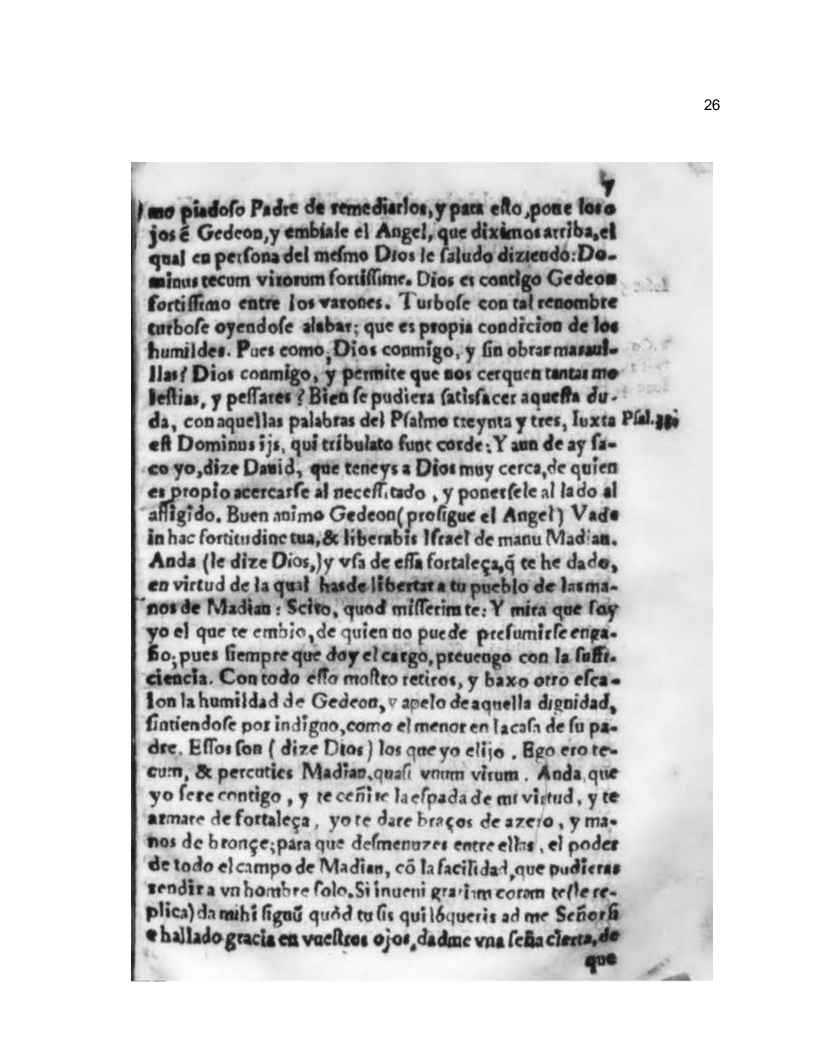 26
7
mo piadoso Padre de remediarlos, y para esto, pone los o
jos ẽ Gedeon, y embiale el Angel, que diximos arriba, el
qual en persona del mesmo Dios le saludo diziendo: Do-
minus tecum virorum fortissime. Dios es contigo Gedeon
fortissimo entre los varones. Turbose con tal renombre
turbose oyendose alabar; que es propia condicion de los
humildes. Pues como, Dios conmigo, y sin obrar maraui-
llas? Dios conmigo, y permite que nos cerquen tantas mo
lestias, y pessares? Bien se pudiera satisfacer aquesta du-
da, con aquellas palabras del Psalmo treynta y tres, Iuxta Psal. 33.
est Dominus ijs, qui tribulato sunt corde: Y aun de ay sa-
co yo, dize Dauid, que teneys a Dios muy cerca, de quien
es propio acercarse al necessitado, y ponersele al lado al
affligido. Buen animo Gedeon (prosigue el Angel) Vade
in hac fortitudine tua, & liberabis Israel de manu Madian.
Anda (le dize Dios,) y vsa de essa fortaleça, q̃ te he dado,
en virtud de la qual hasde libertar a tu pueblo de las ma-
nos de Madian: Scito, quod misserim te: Y mira que soy
yo el que te embio, de quien no puede presumirse enga-
ño; pues siempre que doy el cargo, preuengo con la suffi-
ciencia. Con todo esso mostro retiros, y baxo otro esca-
lon la humildad de Gedeon, y apelo de aquella dignidad,
sintiendose por indigno, como el menor en la casa de su pa-
dre. Essos son (dize Dios) los que yo elijo. Ego ero te-
cum, & percuties Madian, quasi vnum virum. Anda, que
yo sere contigo, y te ceñire la espada de mi virtud, y te
armare de fortaleça, yo te dare braços de azero, y ma-
nos de bronçe; para que desmenuzes entre ellas, el poder
de todo el campo de Madian, cõ la facilidad, que pudieras
rendir a vn hombre solo. Si inueni gratiam coram te (le re-
plica) da mihi signũ quòd tu sis qui lóqueris ad me Señor si
e hallado gracia en vuestros ojos, dadme vna seña cierta, de
que